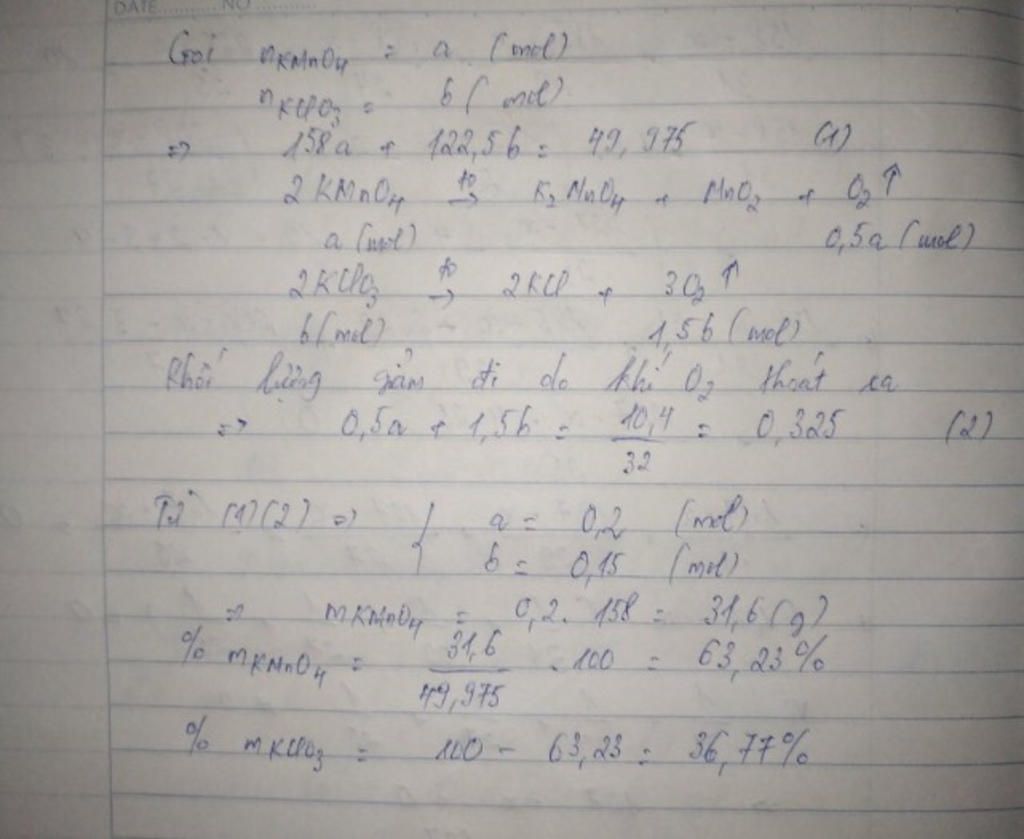 DATE.......... NO ..........
Gọi nKMnO4 = a (mol)
nKClO3 = b (mol)
=> 158a + 122,5b = 49,975 (1)
2KMnO4 t0→ K2MnO4 + MnO2 + O2↑
a (mol) 0,5a (mol)
2KClO3 t0→ 2KCl + 3O2↑
b (mol) 1,5b (mol)
Khối lượng giảm đi do khí O2 thoát ra
=> 0,5a + 1,5b = 10,4/32 = 0,325 (2)
Từ (1)(2) => { a = 0,2 (mol)
b = 0,15 (mol)
=> mKMnO4 = 0,2. 158 = 31,6 (g)
% mKMnO4 = 31,6/49,975 . 100 = 63,23%
% mKClO3 = 100 - 63,23 = 36,77%